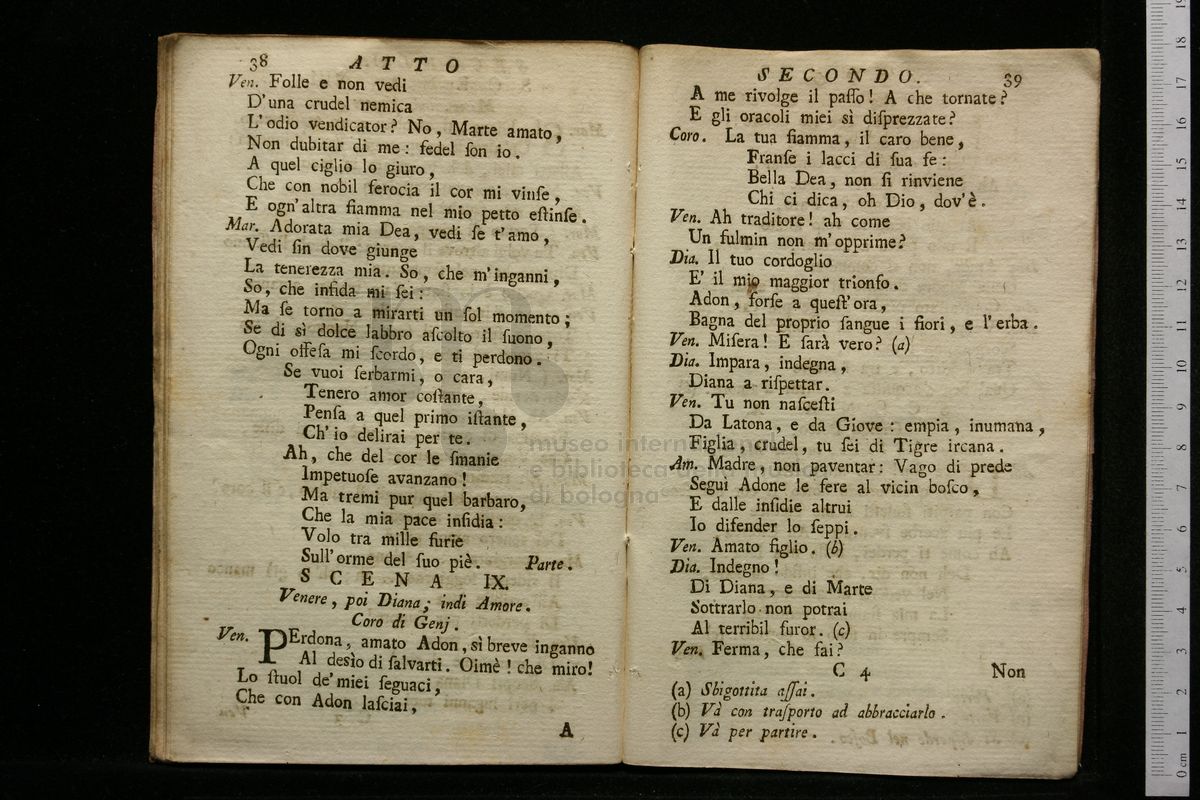 38 ATTO
Ven. Folle e non vedi
D'una crudel nemica
L'odio vendicator? No, Marte amato,
Non dubitar di me: fedel ſon io.
A quel ciglio lo giuro,
Che con nobil ferocia il cor mi vinſe,
E ogn'altra fiamma nel mio petto eſtinſe.
Mar. Adorata mia Dea, vedi ſe t'amo,
Vedi fin dove giunge
La tenerezza mia. So, che m'inganni,
So, che infida mi ſei:
Ma ſe torno a mirarti un ſol momento;
Se di sì dolce labbro aſcolto il ſuono,
Ogni offeſa mi ſcordo, e ti perdono.
Se vuoi ſerbarmi, o cara,
Tenero amor coſtante,
Penſa a quel primo iſtante,
Ch'io delirai per te.
Ah, che del cor le ſmanie
Impetuoſe avanzano!
Ma tremi pur quel barbaro,
Che la mia pace inſidia:
Volo tra mille furie
Sull'orme del ſuo piè. Parte.
SCENA IX.
Venere, poi Diana; indi Amore.
Coro di Genj.
Ven. PErdona, amato Adon, sì breve inganno
Al desìo di ſalvarti. Oimè! che miro!
Lo ſtuol de'miei ſeguaci,
Che con Adon laſciai,
A
SECONDO. 39
A me rivolge il paſſo! A che tornate?
E gli oracoli miei sì diſprezzate?
Coro. La tua fiamma, il caro bene,
Franſe i lacci di ſua fe:
Bella Dea, non ſi rinviene
Chi ci dica, oh Dio, dov'è.
Ven. Ah traditore! ah come
Un fulmin non m'opprime?
Dia. Il tuo cordoglio
E' il mio maggior trionfo.
Adon, forſe a queſt'ora,
Bagna del proprio ſangue i fiori, e l'erba.
Ven. Miſera! E ſarà vero? (a)
Dia. Impara, indegna,
Diana a riſpettar.
Ven. Tu non naſceſti
Da Latona, e da Giove: empia, inumana,
Figlia, crudel, tu ſei di Tigre ircana.
Am. Madre, non paventar: Vago di prede
Seguì Adone le fere al vicin boſco,
E dalle inſidie altrui
Io difender lo ſeppi.
Ven. Amato figlio. (b)
Dia. Indegno!
Di Diana, e di Marte
Sottrarlo non potrai
Al terribil furor. (c)
Ven. Ferma, che fai?
C 4 Non
(a) Sbigottita aſſai.
(b) Và con traſporto ad abbracciarlo.
(c) Và per partire.
museo internazionale
e biblioteca della musica
di bologna